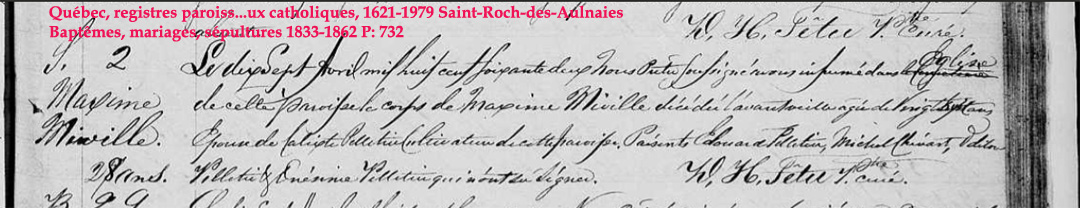 Québec, registres paroiss...ux catholiques, 1621-1979 Saint-Roch-des-Aulnaies
Baptêmes, mariages, sépultures 1833-1862 P: 732
D, H, Têtu Ptre Curé.
S. 2
Le dix Sept Avril mil huit cent soixante deux Nous Prêtre Soussigné avons inhumé dans Eglise
Maxime
de cette paroisse le corps de Maxime Miville décédée l'avant veille agée de Vingt huit ans
Miville.
Epouse de Calixte Pelletier Cultivateur de cette paroisse. Présents, Edouard Pelletier, Michel
28 ans.
Pelletier & Onésime Pelletier qui n'ont su signer.
D, H, Têtu Ptre curé.